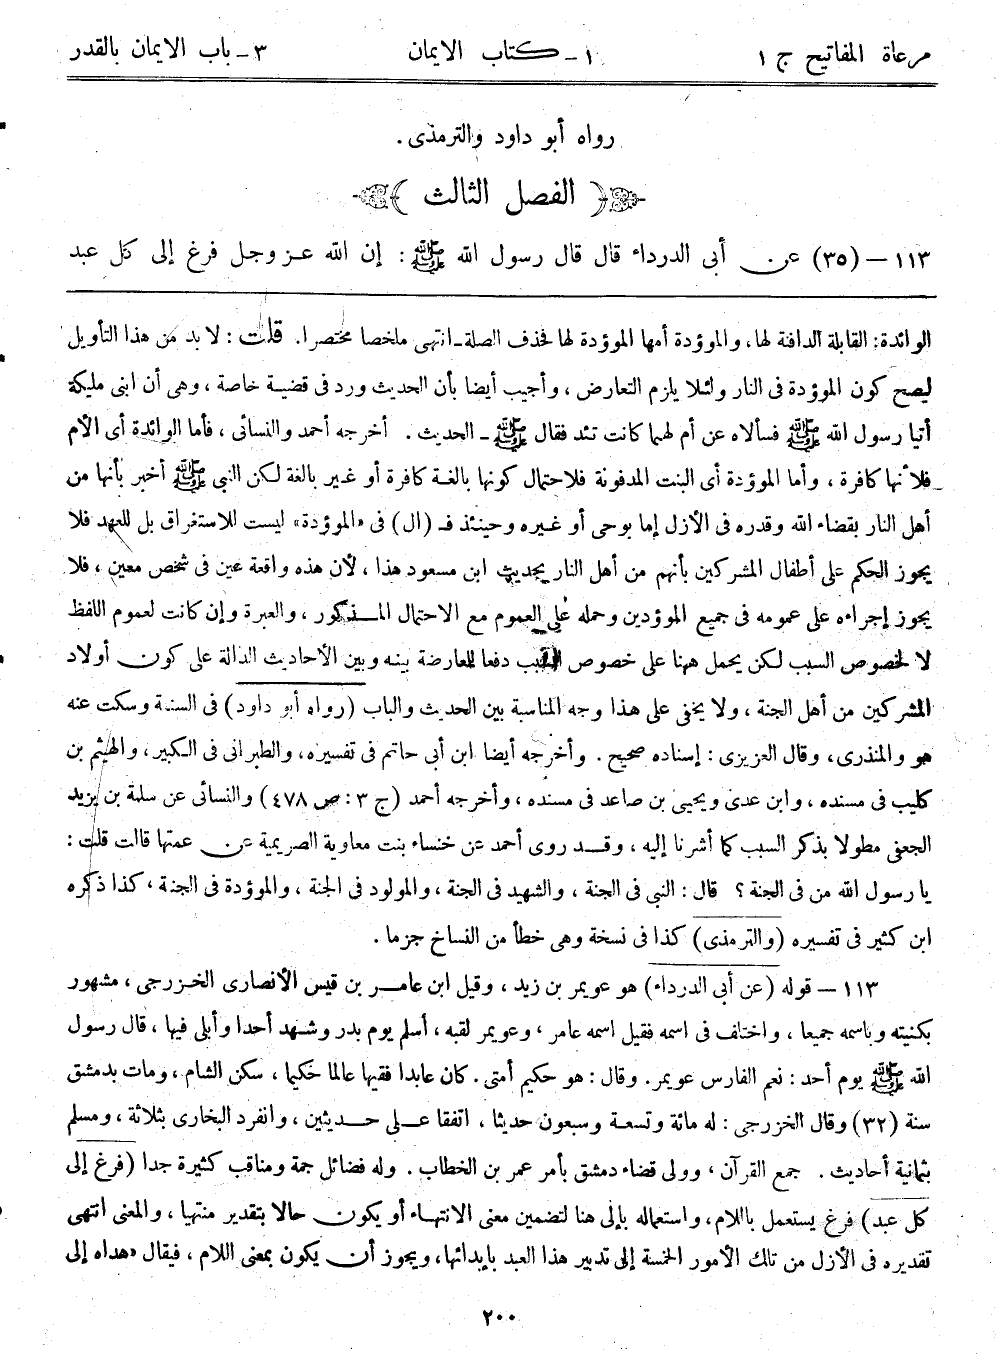 مرعاة المفاتيح ج ١ ١ ـ كتاب الايمان ٣ ـ باب الايمان بالقدر
رواه أبو داود والترمذى .
﴿ الفصل الثالث ﴾
١١٣ – (٣٥) عن أبى الدرداء قال قال رسول الله ﷺ : إن الله عز وجل فرغ إلى كل عبد
الوائدة : القابلة الدافنة لها ، والموؤدة أمها الموؤدة لها فحذف الصلة ـ انتهى ملخصا مختصرا . قلت : لا بد من هذا التأويل
ليصح كون الموؤدة فى النار ولئلا يلزم التعارض ، وأجيب أيضا بأن الحديث ورد فى قضية خاصة ، وهى أن ابنى مليكة
أتيا رسول الله ﷺ فسألاه عن أم لهما كانت تئد فقال ﷺ ـ الحديث . أخرجه أحمد والنسائى ، فأما الوائدة أى الأم
فلأنها كافرة ، وأما الموؤدة أى البنت المدفونة فلاحتمال كونها بالغة كافرة أو غير بالغة لكن النبى ﷺ أخبر بأنها من
أهل النار بقضاء الله وقدره فى الأزل إما بوحى أو غيره وحينئذ فـ (ال) فى «الموؤدة» ليست للاستغراق بل للعهد فلا
يجوز الحكم على أطفال المشركين بأنهم من أهل النار بحديث ابن مسعود هذا ، لأن هذه واقعة عين فى شخص معين ، فلا
يجوز إجراءه على عمومه فى جميع الموؤدين وحمله على العموم مع الاحتمال المذكور ، والعبرة وإن كانت لعموم اللفظ
لا لخصوص السبب لكن يحمل ههنا على خصوص السبب دفعا للمعارضة بينه وبين الأحاديث الدالة على كون أولاد
المشركين من أهل الجنة ، ولا يخفى على هذا وجه المناسبة بين الحديث والباب (رواه أبو داود) فى السنة وسكت عنه
هو والمنذرى ، وقال العزيزى : إسناده صحيح . وأخرجه أيضا ابن أبى حاتم فى تفسيره ، والطبرانى فى الكبير ، والهيثم بن
كليب فى مسنده ، وابن عدى ويحيى بن صاعد فى مسنده ، وأخرجه أحمد (ج ٣ : ص ٤٧٨) والنسائى عن سلمة بن يزيد
الجعفى مطولا بذكر السبب كما أشرنا إليه ، وقد روى أحمد عن خنساء بنت معاوية الصريمية عن عمتها قالت قلت :
يا رسول الله من فى الجنة ؟ قال : النبى فى الجنة ، والشهيد فى الجنة ، والمولود فى الجنة ، والموؤدة فى الجنة ، كذا ذكره
ابن كثير فى تفسيره (والترمذى) كذا فى نسخة وهى خطأ من النساخ جزما .
١١٣ – قوله (عن أبى الدرداء) هو عويمر بن زيد ، وقيل ابن عامر بن قيس الأنصارى الخزرجى ، مشهور
بكنيته وباسمه جميعا ، واختلف فى اسمه فقيل اسمه عامر ، وعويمر لقبه ، أسلم يوم بدر وشهد أحدا وأبلى فيها ، قال رسول
الله ﷺ يوم أحد : نعم الفارس عويمر . وقال : هو حكيم أمتى . كان عابدا فقيها عالما حكيما ، سكن الشام ، ومات بدمشق
سنة (٣٢) وقال الخزرجى : له مائة وتسعة وسبعون حديثا ، اتفقا على حديثين ، وانفرد البخارى بثلاثة ، ومسلم
بثمانية أحاديث . جمع القرآن ، وولى قضاء دمشق بأمر عمر بن الخطاب . وله فضائل جمة ومناقب كثيرة جدا (فرغ إلى
كل عبد) فرغ يستعمل باللام ، واستعماله بإلى هنا لتضمين معنى الانتهاء أو يكون حالا بتقدير منتهيا ، والمعنى انتهى
تقديره فى الأزل من تلك الأمور الخمسة إلى تدبير هذا العبد بإبدائها ، ويجوز أن يكون بمعنى اللام ، فيقال «هداه إلى
٢٠٠